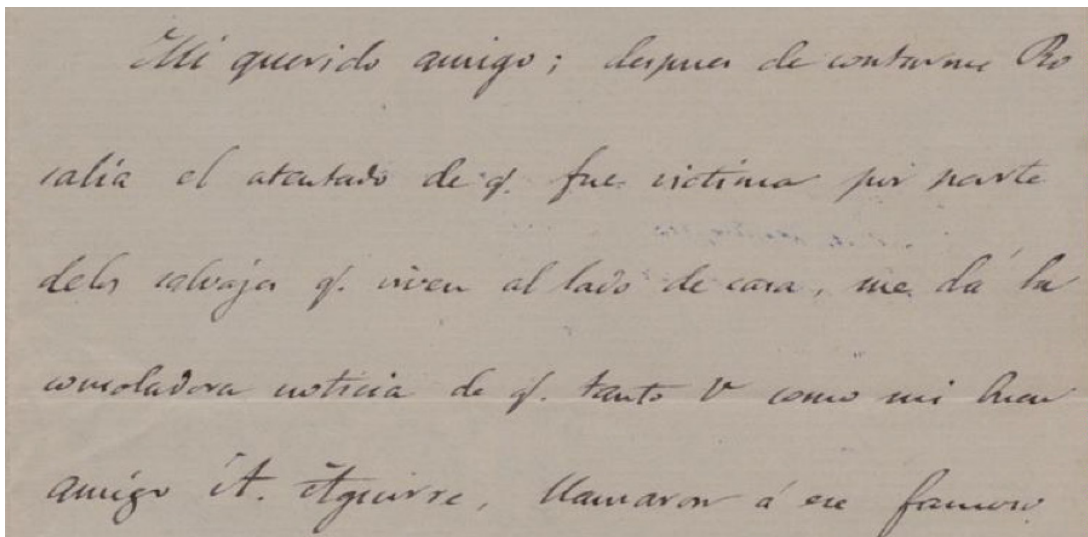 Mi querido amigo; despues de contarme Ro
salía el atentado de q. fue victima por parte
delos salvajes q. viven al lado de casa, me dá la
consoladora noticia de q. tanto V como mi buen
amigo A. Aguirre, llamaron á ese famoso